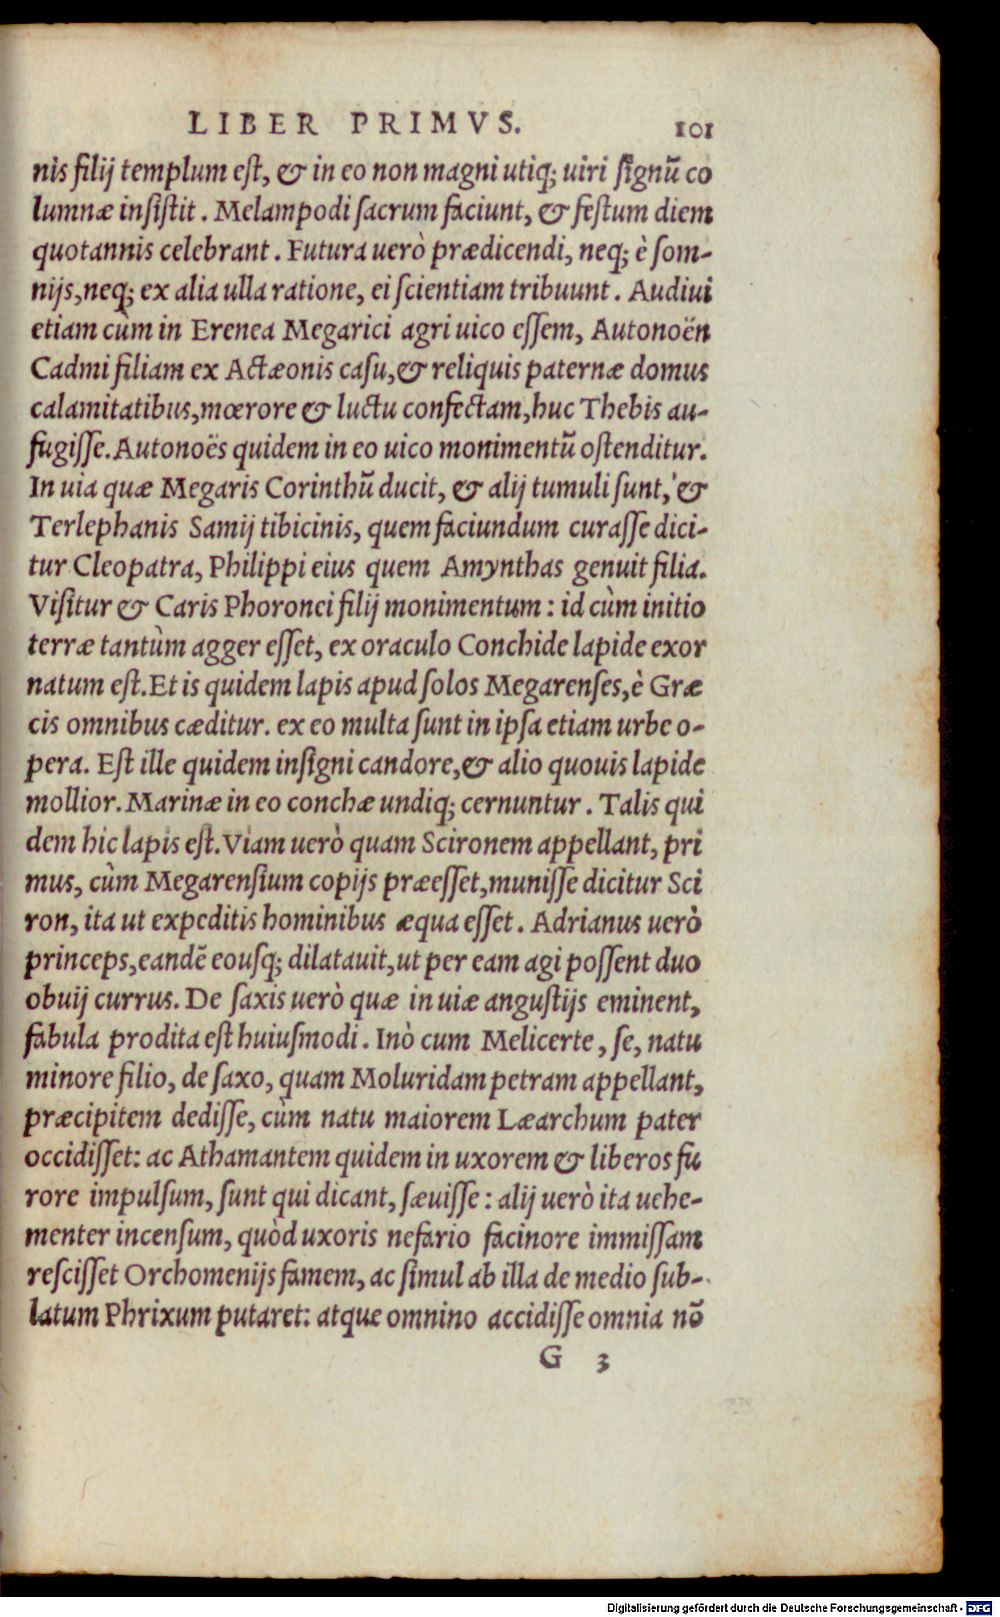 LIBER PRIMVS. 101
nis filij templum est, & in eo non magni utiq; uiri signū co
lumnæ insistit. Melampodi sacrum faciunt, & festum diem
quotannis celebrant. Futura uerò prædicendi, neq; è som-
nijs, neq; ex alia ulla ratione, ei scientiam tribuunt. Audiui
etiam cùm in Erenea Megarici agri uico essem, Autonoën
Cadmi filiam ex Actæonis casu, & reliquis paternæ domus
calamitatibus, mœrore & luctu confectam, huc Thebis au-
fugisse. Autonoës quidem in eo uico monimentū ostenditur.
In uia quæ Megaris Corinthū ducit, & alij tumuli sunt, &
Terlephanis Samij tibicinis, quem faciundum curasse dici-
tur Cleopatra, Philippi eius quem Amynthas genuit filia.
Visitur & Caris Phoronei filij monimentum: id cùm initio
terræ tantùm agger esset, ex oraculo Conchide lapide exor
natum est. Et is quidem lapis apud solos Megarenses, è Græ
cis omnibus cæditur. ex eo multa sunt in ipsa etiam urbe o-
pera. Est ille quidem insigni candore, & alio quouis lapide
mollior. Marinæ in eo conchæ undiq; cernuntur. Talis qui
dem hic lapis est. Viam uerò quam Scironem appellant, pri
mus, cùm Megarensium copijs præesset, munisse dicitur Sci
ron, ita ut expeditis hominibus æqua esset. Adrianus uerò
princeps, eandē eousq; dilatauit, ut per eam agi possent duo
obuij currus. De saxis uerò quæ in uiæ angustijs eminent,
fabula prodita est huiusmodi. Inò cum Melicerte, se, natu
minore filio, de saxo, quam Moluridam petram appellant,
præcipitem dedisse, cùm natu maiorem Læarchum pater
occidisset: ac Athamantem quidem in uxorem & liberos fu
rore impulsum, sunt qui dicant, sæuisse: alij uerò ita uehe-
menter incensum, quòd uxoris nefario facinore immissam
rescisset Orchomenijs famem, ac simul ab illa de medio sub-
latum Phrixum putaret: atque omnino accidisse omnia nō
G 3
Digitalisierung gefördert durch die Deutsche Forschungsgemeinschaft - DFG